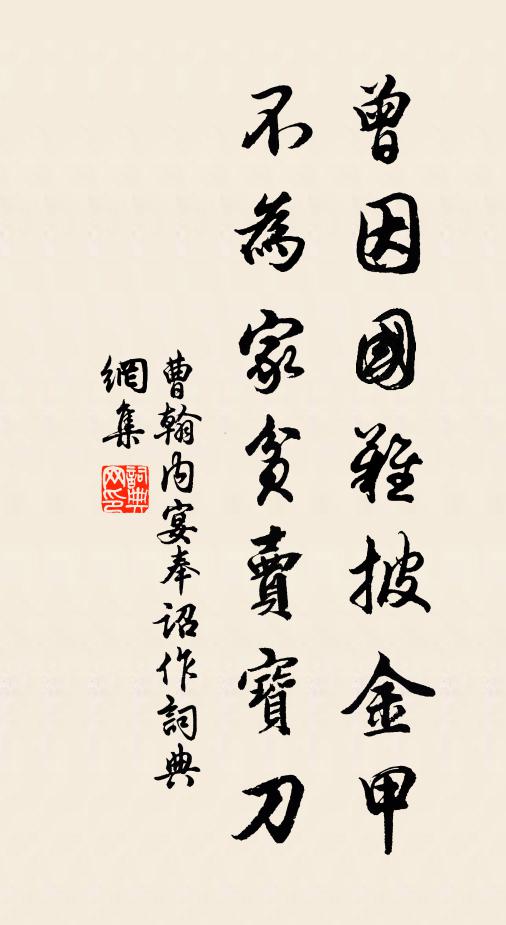 曾因國難披金甲
不為家貧賣寶刀
曹翰內宴奉詔作詞典
網集
詞典網印